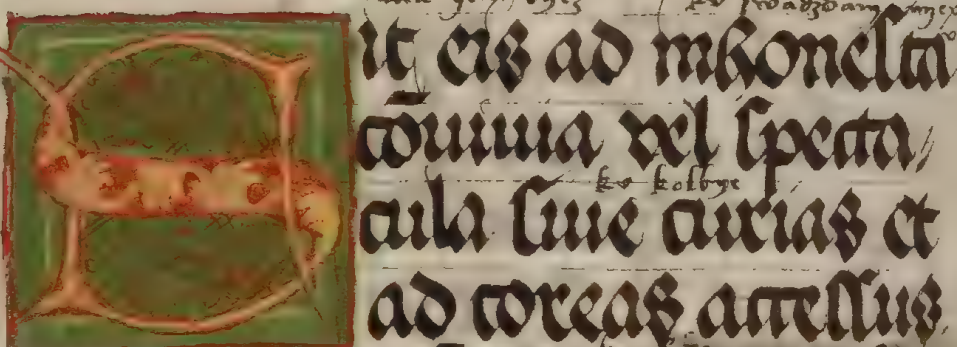 Sit eis ad inhonesta
co̅uiuia vel specta/
ko kolrye
cula siue curias et
ad coreas accessus.